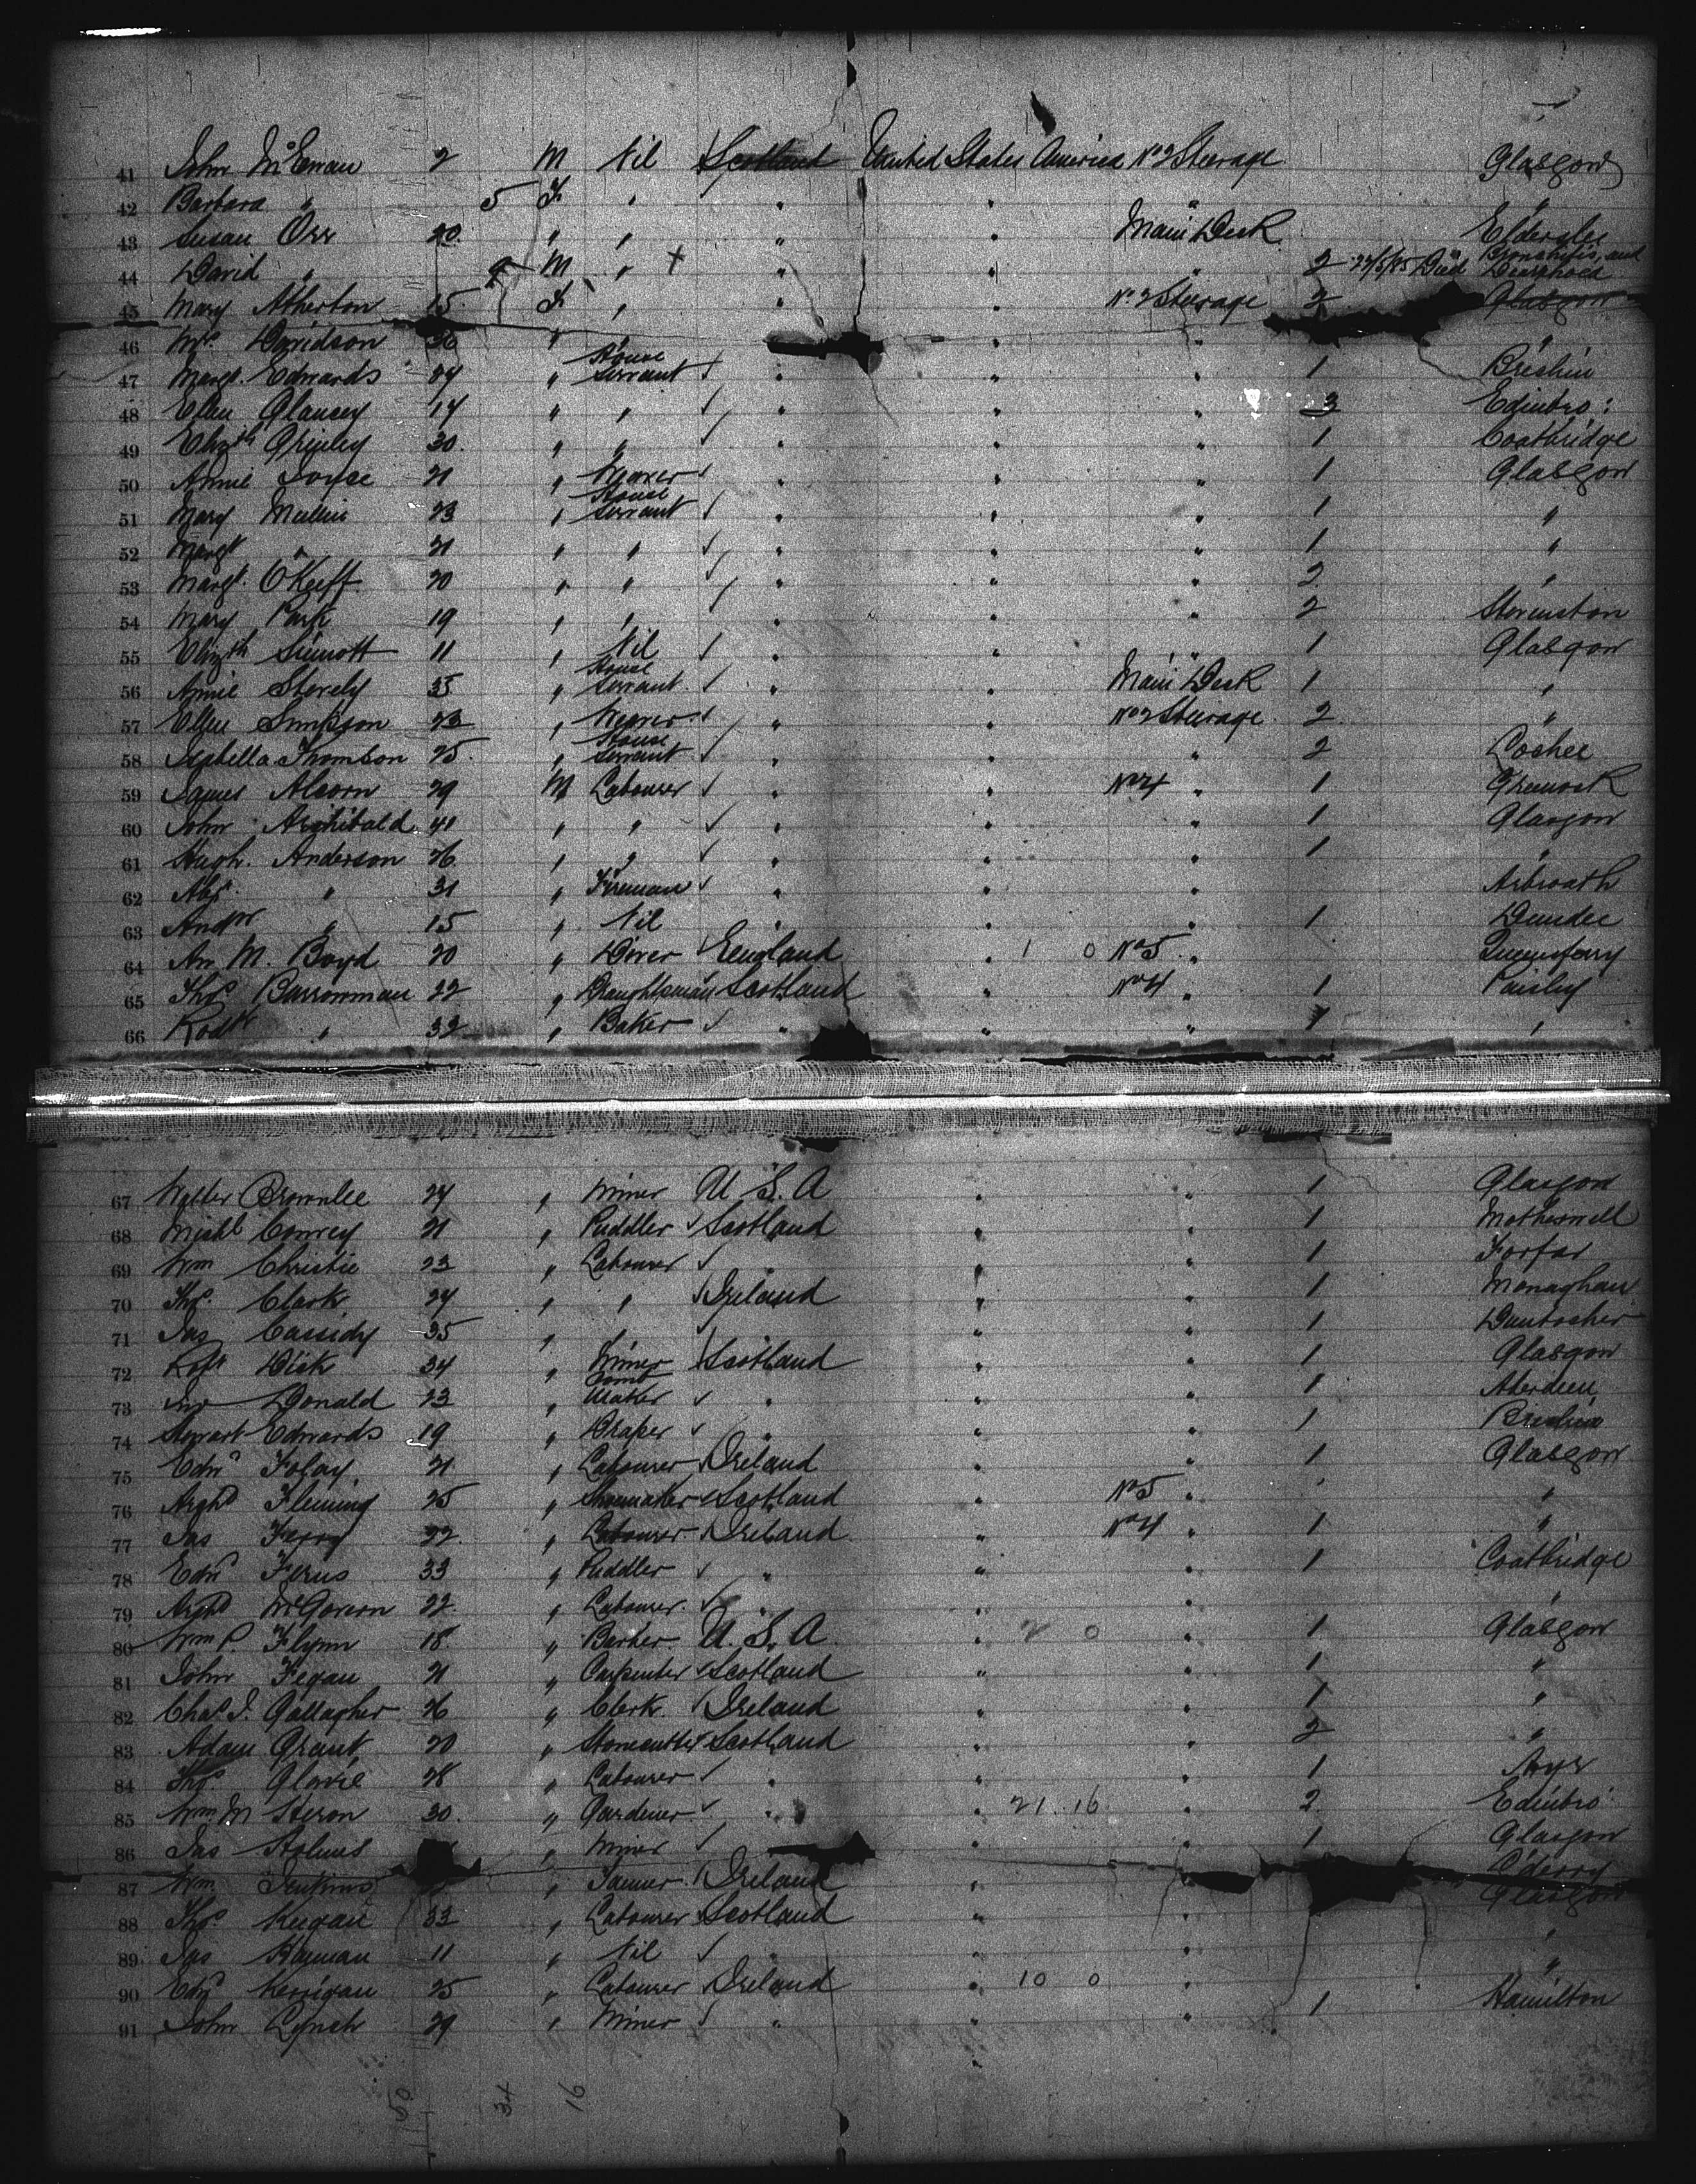 41 John McEwan 2 M Nil Scotland United States America No 2 Steerage Glasgow
42 Barbara " 5 F " " " " "
43 Susan Orr 20 " " " " Main Deck Elderslie
44 David " 9 M " " " " 2 22/5/85 Died Bronchitis, and Diarrhoea
45 Mary Atherton 15 F " " " No 2 Steerage 2 Glasgow
46 Mrs Davidson 36 " " " "
47 Margt. Edwards 24 " House Servant " " " 1 Brechin
48 Ellen Glancey 14 " " " " " 3 Edinbro:
49 Elizth Grimley 30 " " " " " 1 Coatbridge
50 Annie Joyce 21 " Weaver " " " 1 Glasgow
51 Mary Mullin 23 " House Servant " " " 1 "
52 Margt " 21 " " " " " 1 "
53 Margt. O'Keeff 20 " " " " " 2 "
54 Mary Park 19 " " " " 2 Stevenston
55 Elizth Sinnott 11 " Nil " " 1 Glasgow
56 Annie 35 " House Servant " " Main Deck 1 "
57 Ellen Simpson 23 " Weaver " " No 2 Steerage 2 "
58 Isabella Thomson 25 " House Servant " " " 2 Lochee
59 James Alcorn 29 M Labourer " " No 4 " 1 Greenock
60 John Archibald 41 " " " " " 1 Glasgow
61 Hugh Anderson 26 " " " " " 1 "
62 Alex. " 31 " Fireman " " " Arbroath
63 Andw " 15 " Nil " " 1 Dundee
64 M. Boyd 20 " England " 1 0 No 5 " Queensferry
65 Thos Barrowman 22 " Draughtsman Scotland " No 4 " 1 Paisley
66 Rodk " 32 " Baker " " " 1 "
67 Walter Brownlee 24 " Miner U. S. A " " 1 Glasgow
68 Michl Conrey 21 " Puddler Scotland " " 1 Motherwell
69 Wm Christie 23 " Labourer " " " 1 Forfar
70 Thos. Clark 24 " " Ireland " " 1 Monaghan
71 Jas Cassidy 35 " " " 1 Duntocher
72 Robt Dick 34 " Miner Scotland " " 1 Glasgow
73 Jno Donald 23 " Comb Maker " " " 1 Aberdeen
74 Stewart Edwards 19 " Draper " " " 1 Brechin
75 Edwd Folay 21 " Labourer Ireland " " 1 Glasgow
76 Archd Fleming 25 " Shoemaker Scotland " No 5 " "
77 Jas Ferry 22 " Labourer Ireland " No 4 " 1 "
78 Edwd Ferns 33 " Puddler " " " 1 Coatbridge
79 Archd McGovern 22 " Labourer " " " "
80 Wm P Flynn 18 " Barber U. S. A " 2 0 " 1 Glasgow
81 John Fegan 21 " Carpenter Scotland " " 1 "
82 Chas. J. Gallagher 26 " Clerk Ireland " " 1 "
83 Adam Grant 20 " Stonecutter Scotland " " 2 "
84 Thos Glavie 28 " Labourer " " " 1 Ayr
85 Wm M Heron 30 " Gardener " " 21 16 " 2 Edinbro'
86 Jas Holmes " Miner " " 1 Glasgow
87 Wm Jenkins " Ireland " L'derry
88 Thos Keegan 33 " Labourer Scotland " " Glasgow
89 Jas 11 " Nil " " " "
90 Edwd Kerrigan 25 " Labourer Ireland " 10 0 " "
91 John Lynch 29 " Miner " " " 1 Hamilton
50
34
16